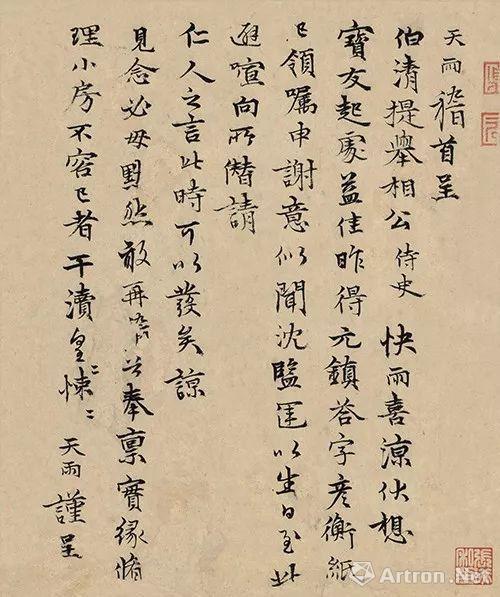 天雨稽首呈
伯清提舉相公侍史快雨喜涼伏想
寶友起處益佳昨得元鎮荅字彦衡紙
已領囑申謝意似聞沈監運以生日至此
避喧向所僭請
仁人之言此時可以發矣諒
見念必毋默然敢再奉稟實緣脩
理小房不容已者干瀆皇〻悚〻天雨謹呈
Artron.Net